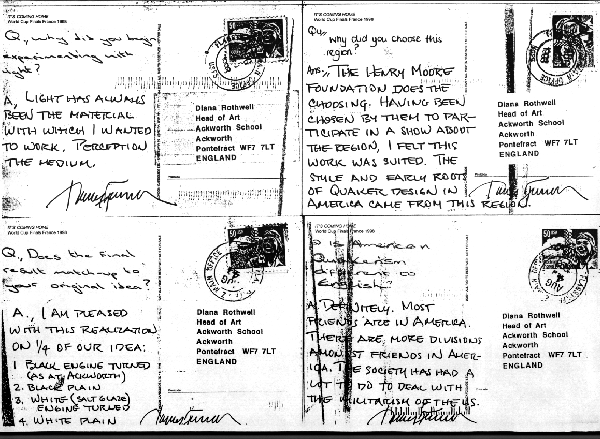 IT'S COMING HOME
World Cup Finals France 1998
Q., why did you begin
experimenting with
light?
A, LIGHT HAS ALWAYS
BEEN THE MATERIAL
WITH WHICH I WANTED
TO WORK. PERCEPTION
THE MEDIUM.
50
Diana Rothwell
Head of Art
Ackworth School
Ackworth
Pontefract WF7 7LT
ENGLAND
IT'S COMING HOME
World Cup Finals France 1998
Qu,
why did you choose this
region?
Ans., THE HENRY MOORE
FOUNDATION DOES THE
CHOOSING. HAVING BEEN
CHOSEN BY THEM TO PAR-
TICIPATE IN A SHOW ABOUT
THE REGION, I FELT THIS
WORK WAS SUITED. THE
STYLE AND EARLY ROOTS
OF QUAKER DESIGN IN
AMERICA CAME FROM THIS REGION.
Diana Rothwell
Head of Art
Ackworth School
Ackworth
Pontefract WF7 7LT
ENGLAND
IT'S COMING HOME
World Cup Finals France 1998
Q., Does the final
result match up to
your original idea?
A., I AM PLEASED
WITH THIS REALIZATION
ON 1/4 OF OUR IDEA:
1 BLACK ENGINE TURNED
(AS AT ACKWORTH)
2. BLACK PLAIN
3, WHITE (SALT GLAZE)
ENGINE TURNED
4. WHITE PLAIN
50
AUG
Diana Rothwell
Head of Art
Ackworth School
Ackworth
Pontefract WF7 7LT
ENGLAND
IT'S COMING HOME
World Cup Finals France 1998
is American
Quakerism
different to
English
A DEFINITELY. MOST
FRIENDS ARE IN AMERICA.
THERE ARE MORE DIVISIONS
AMONGST FRIENDS IN AMER-
ICA. THE SOCIETY HAS HAD A
LOT TO DO TO DEAL WITH
THE MILITARISM OF THE US.
50
AUG
Diana Rothwell
Head of Art
Ackworth School
Ackworth
Pontefract WF7 7LT
ENGLAND